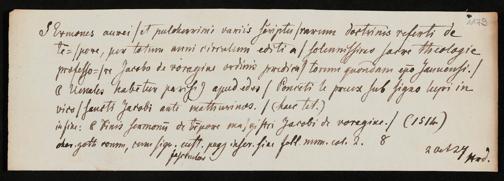 1173
SErmones aurei / et pulcherrimi variis scriptu/rarum doctrinis referti de
te=/pore, per totum anni circulum editi a / solennissimo sacre theologie
professo=/re Jacobo de voragine ordinis predica/torum quondam epo Januensi. /
Venales habetur parisijs apud edes / Ponceti le preux sub signo lupi in
vico / sancti Jacobi ante mathurinos. / (haec tit.)
in fine: Finis sermonum de tempore magistri Jacobi de voragine. / (1514)
char. goth. cum sign. cust. fol. num. col. 2. 8
2 Oct 24